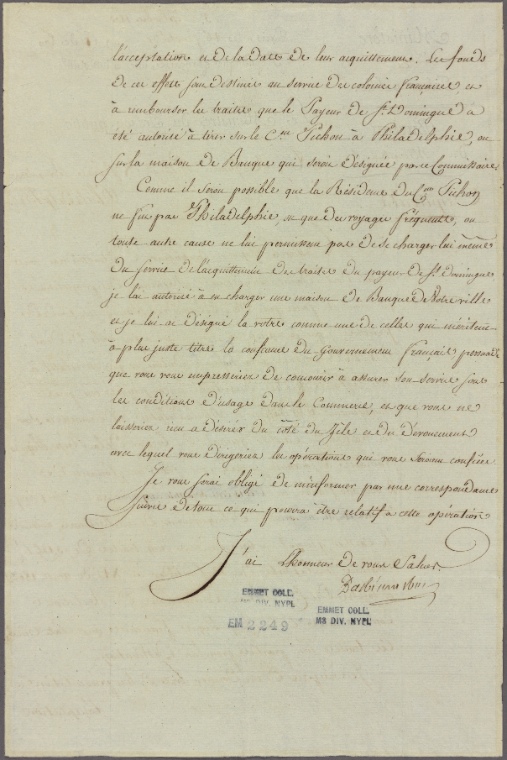 l'acceptation et de la date de leur acquittement. Les fonds
de ces effets sont destinés au service des colonies françaises et
à rembourser les traites que le Payeur de St. Domingue a
été autorisé à tirer sur le C.en Pichon à Philadelphie, ou
sur la maison de Banque qui seroit désignée par ce Commissaire.
Comme il seroit possible que la Résidence du C.en Pichon
ne fut pas Philadelphie, ou que des voyages fréquents, ou
toute autre cause ne lui permissent pas de se charger lui même
du service de l'acquittement des traites du payeur de St. Domingue
je l'ai autorisé à en charger une maison de Banque de votre ville
et je lui ai désigné la votre comme une de celles qui méritent
à plus juste titre la confiance du Gouvernement français persuadé
que vous vous empresserez de concourir à assurer son service sous
les conditions d'usage dans le Commerce, et que vous ne
laisserez rien à désirer du côté du zèle et du dévouement
avec lequel vous dirigerez les opérations qui vous seront confiées
Je vous serai obligé de m'informer par une correspondance
suivie de tout ce qui pourra être relatif à cette opération.
J'ai l'honneur de vous saluer.
EMMET COLL.
MS DIV. NYPL
EM 2249
EMMET COLL.
MS DIV. NYPL